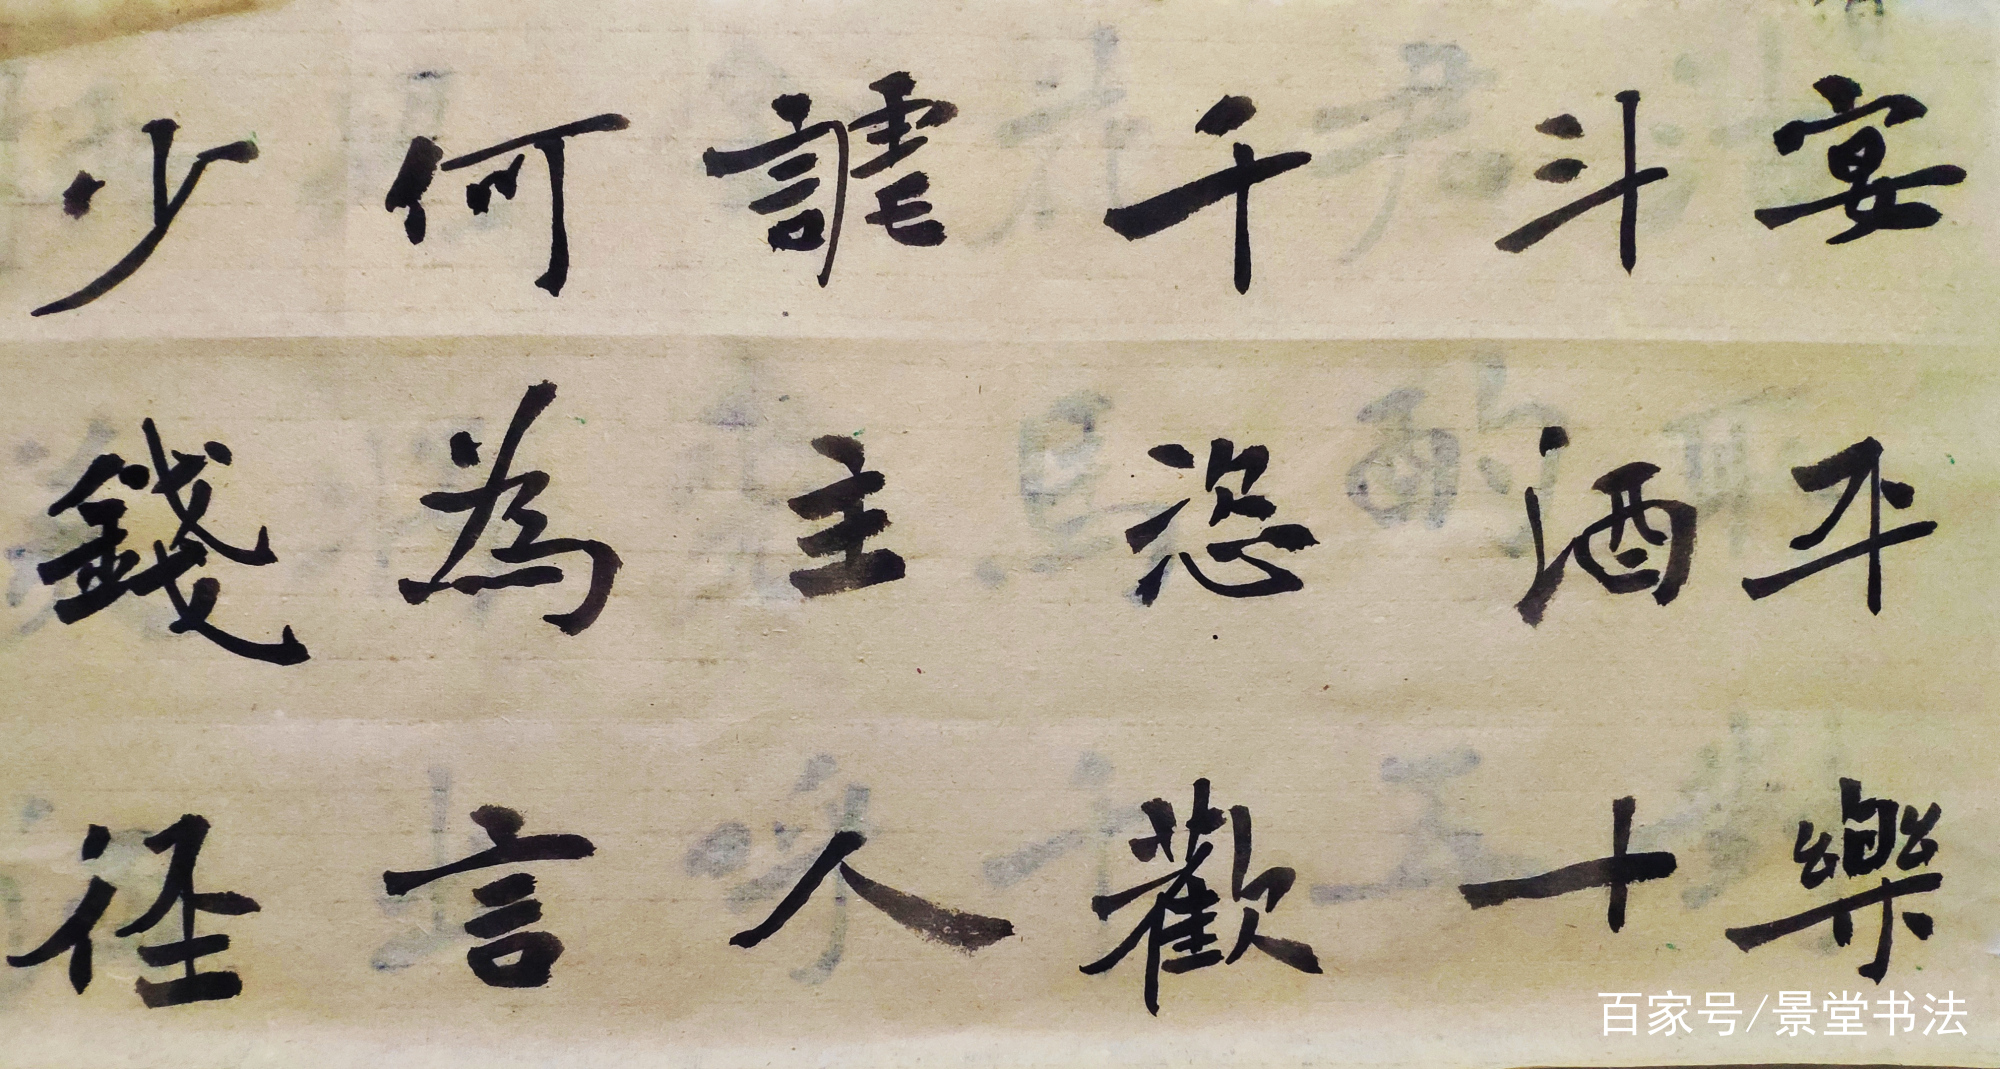 宴平樂
斗酒十
千恣歡
謔主人
何為言
少錢径
百家号/景堂书法